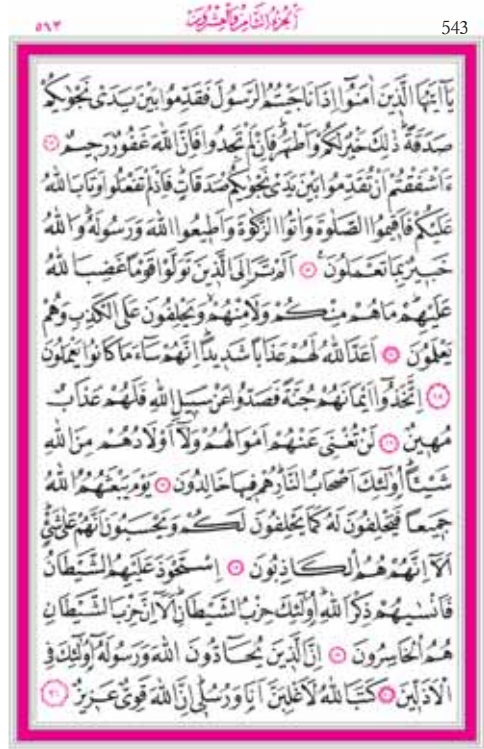 ٥٤٣ الجزء الثامن والعشرون 543
يَٓا اَيُّهَا الَّذ۪ينَ اٰمَنُٓوا اِذَا نَاجَيْتُمُ الرَّسُولَ فَقَدِّمُوا بَيْنَ يَدَيْ نَجْوٰيكُمْ
صَدَقَةًۜ ذٰلِكَ خَيْرٌ لَكُمْ وَاَطْهَرُۜ فَاِنْ لَمْ تَجِدُوا فَاِنَّ اللّٰهَ غَفُورٌ رَح۪يمٌ ﴿١٢﴾
ءَاَشْفَقْتُمْ اَنْ تُقَدِّمُوا بَيْنَ يَدَيْ نَجْوٰيكُمْ صَدَقَاتٍۜ فَاِذْ لَمْ تَفْعَلُوا وَتَابَ اللّٰهُ
عَلَيْكُمْ فَاَق۪يمُوا الصَّلٰوةَ وَاٰتُوا الزَّكٰوةَ وَاَط۪يعُوا اللّٰهَ وَرَسُولَهُۜ وَاللّٰهُ
خَب۪يرٌ بِمَا تَعْمَلُونَ۟ ﴿١٣﴾ اَلَمْ تَرَ اِلَى الَّذ۪ينَ تَوَلَّوْا قَوْمًا غَضِبَ اللّٰهُ
عَلَيْهِمْۜ مَا هُمْ مِنْكُمْ وَلَا مِنْهُمْۙ وَيَحْلِفُونَ عَلَى الْكَذِبِ وَهُمْ
يَعْلَمُونَ ﴿١٤﴾ اَعَدَّ اللّٰهُ لَهُمْ عَذَابًا شَد۪يدًاۜ اِنَّهُمْ سَٓاءَ مَا كَانُوا يَعْمَلُونَ
﴿١٥﴾ اِتَّخَذُٓوا اَيْمَانَهُمْ جُنَّةً فَصَدُّوا عَنْ سَب۪يلِ اللّٰهِ فَلَهُمْ عَذَابٌ
مُه۪ينٌ ﴿١٦﴾ لَنْ تُغْنِيَ عَنْهُمْ اَمْوَالُهُمْ وَلَٓا اَوْلَادُهُمْ مِنَ اللّٰهِ
شَيْـًٔاۜ اُو۬لٰٓئِكَ اَصْحَابُ النَّارِۜ هُمْ ف۪يهَا خَالِدُونَ ﴿١٧﴾ يَوْمَ يَبْعَثُهُمُ اللّٰهُ
جَم۪يعًا فَيَحْلِفُونَ لَهُ كَمَا يَحْلِفُونَ لَكُمْ وَيَحْسَبُونَ اَنَّهُمْ عَلٰى شَيْءٍۜ
اَلَٓا اِنَّهُمْ هُمُ الْكَاذِبُونَ ﴿١٨﴾ اِسْتَحْوَذَ عَلَيْهِمُ الشَّيْطَانُ
فَاَنْسٰيهُمْ ذِكْرَ اللّٰهِۜ اُو۬لٰٓئِكَ حِزْبُ الشَّيْطَانِۜ اَلَٓا اِنَّ حِزْبَ الشَّيْطَانِ
هُمُ الْخَاسِرُونَ ﴿١٩﴾ اِنَّ الَّذ۪ينَ يُحَٓادُّونَ اللّٰهَ وَرَسُولَهُٓ اُو۬لٰٓئِكَ فِي
الْاَذَلّ۪ينَ ﴿٢٠﴾ كَتَبَ اللّٰهُ لَاَغْلِبَنَّ اَنَا۬ وَرُسُل۪يۜ اِنَّ اللّٰهَ قَوِيٌّ عَز۪يزٌ ﴿٢١﴾